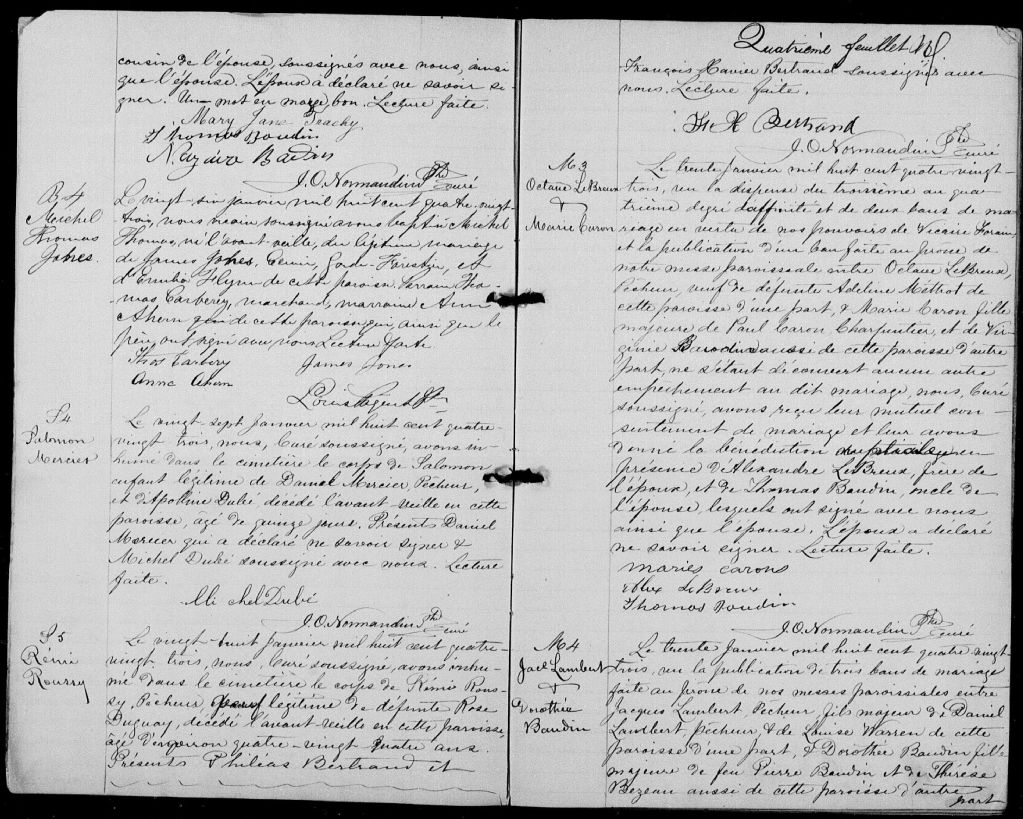 cousin de l'épouse, soussignés avec nous, ainsi
que l'épouse. L'époux a déclaré ne savoir si-
gner. Un mot en marge, bon. Lecture faite.
Mary Jane
Thomas Baudin
Baudin
J. O. Normandin Ptre curé
B. 4
Michel
Thomas
Jones.
Le vingt-six janvier mil huit cent quatre-vingt
trois, nous soussigné avons baptisé Michel
Thomas, né l'avant-veille, du légitime mariage
de James Jones, et
d'Emilia Flynn de cette paroisse. Parrain Tho-
mas Carberey, marchand, marraine Ann
Ahern de cette paroisse qui, ainsi que le
père, ont signé avec nous Lecture faite.
Thos Carbery James Jones
Anne Ahern
Ptre
S 4
Salomon
Mercier
Le vingt-sept Janvier mil huit cent quatre-
vingt trois, nous, Curé soussigné, avons in-
humé dans le cimetière le corps de Salomon
enfant légitime de Daniel Mercier Pêcheur,
et d'Apolline Dubé, décédé l'avant veille en cette
paroisse, âgé de quinze jours. Présents Daniel
Mercier qui a déclaré ne savoir signer &
Michel Dubé soussigné avec nous. Lecture
faite.
Mi chel Dubé
J. O. Normandin Ptre curé
S 5
Rémi
Roussy
Le vingt-huit Janvier mil huit cent quatre-
vingt-trois, nous, Curé soussigné, avons inhu-
mé dans le cimetière le corps de Rémi Rous-
sy, Pêcheur, légitime de défunte Rose
Duguay, décédé l'avant-veille en cette paroisse
âgé d'environ quatre-vingt quatre ans.
Présents Philéas Bertrand et
Quatrième feuillet
François Xavier Bertrand soussignés avec
nous. Lecture faite.
F. X Bertrand
J. O. Normandin Ptre curé
M 3
Octave LeBreux
&
Marie Caron
Le trente Janvier mil huit cent quatre-vingt-
trois, vu la dispense du troisième au qua-
trième degré d'affinité et de deux bans de ma-
riage en vertu de nos pouvoirs de Vicaire Forain,
et la publication d'un ban faite au prône de
notre messe paroissiale entre Octave LeBreux,
Pêcheur, veuf de défunte Adeline Méthot de
cette paroisse d'une part, & Marie Caron fille
majeure de Paul Caron, Charpentier, et de Vir-
ginie aussi de cette paroisse d'autre
part, ne s'étant découvert aucun autre
empêchement au dit mariage, nous, Curé
soussigné, avons reçu leur mutuel con-
sentement de mariage et leur avons
donné la bénédiction nuptiale en
présence d'Alexandre LeBreux, frère de
l'époux, et de Thomas Baudin, oncle de
l'épouse, lesquels ont signé avec nous
ainsi que l'épouse. L'époux a déclaré
ne savoir signer. Lecture faite.
maries carons
Alex LeBreux
Thomas Baudin
J. O. Normandin Ptre curé
M 4
Jacq Lambert
&
Dorothée
Baudin
Le trente Janvier mil huit cent quatre-vingt-
trois, vu la publication de trois bans de mariage
faite au prône de nos messes paroissiales entre
Jacques Lambert, Pêcheur, fils majeur de Daniel
Lambert, Pêcheur & de Louise Warren de cette
paroisse d'une part, & Dorothée Baudin fille
majeure de feu Pierre Baudin et de Thérèse
Bezeau aussi de cette paroisse d'autre
part